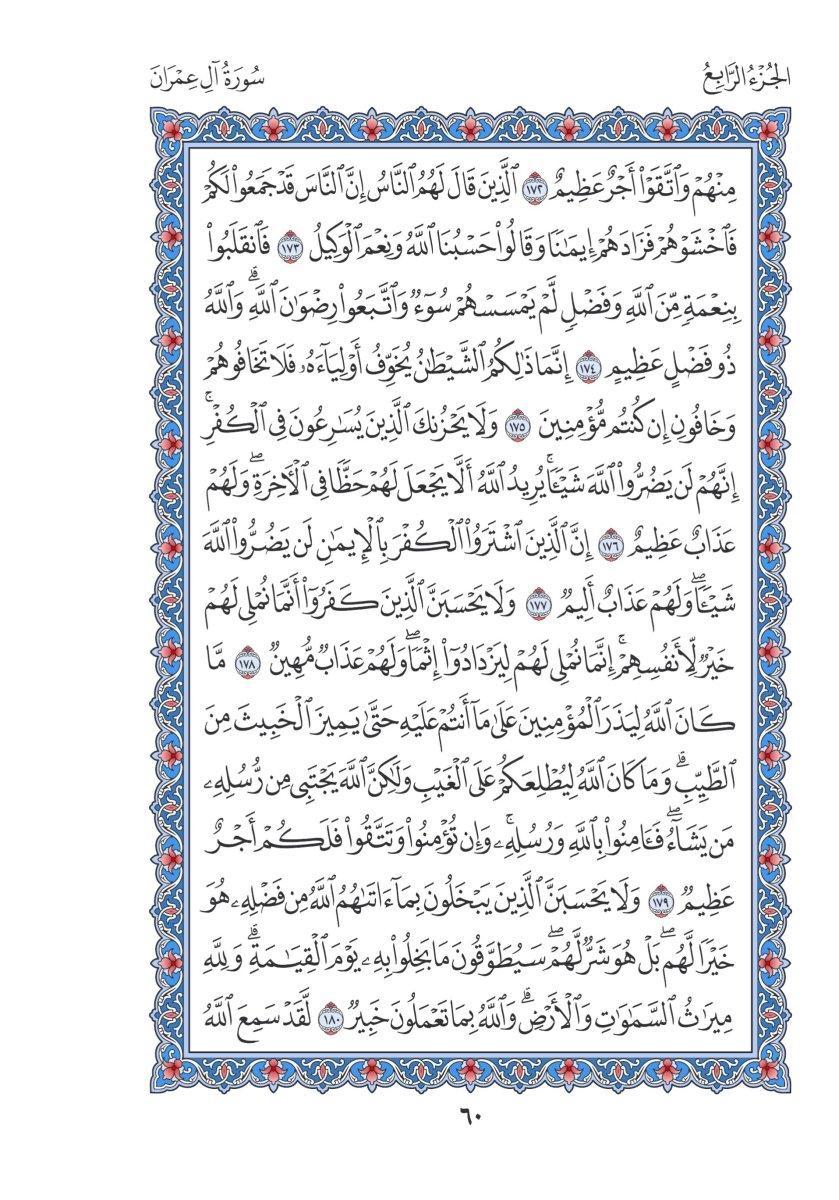 الجُزْءُ الرَّابِعُ
سُورَةُ آلِ عِمْرَانَ
مِنْهُمْ وَٱتَّقَوْا۟ أَجْرٌ عَظِيمٌ ١٧٢ ٱلَّذِينَ قَالَ لَهُمُ ٱلنَّاسُ إِنَّ ٱلنَّاسَ قَدْ جَمَعُوا۟ لَكُمْ
فَٱخْشَوْهُمْ فَزَادَهُمْ إِيمَٰنًا وَقَالُوا۟ حَسْبُنَا ٱللَّهُ وَنِعْمَ ٱلْوَكِيلُ ١٧٣ فَٱنقَلَبُوا۟
بِنِعْمَةٍ مِّنَ ٱللَّهِ وَفَضْلٍ لَّمْ يَمْسَسْهُمْ سُوٓءٌ وَٱتَّبَعُوا۟ رِضْوَٰنَ ٱللَّهِ ۗ وَٱللَّهُ
ذُو فَضْلٍ عَظِيمٍ ١٧٤ إِنَّمَا ذَٰلِكُمُ ٱلشَّيْطَٰنُ يُخَوِّفُ أَوْلِيَآءَهُۥ فَلَا تَخَافُوهُمْ
وَخَافُونِ إِن كُنتُم مُّؤْمِنِينَ ١٧٥ وَلَا يَحْزُنكَ ٱلَّذِينَ يُسَٰرِعُونَ فِى ٱلْكُفْرِ ۚ
إِنَّهُمْ لَن يَضُرُّوا۟ ٱللَّهَ شَيْـًٔا ۗ يُرِيدُ ٱللَّهُ أَلَّا يَجْعَلَ لَهُمْ حَظًّا فِى ٱلْـَٔاخِرَةِ ۖ وَلَهُمْ
عَذَابٌ عَظِيمٌ ١٧٦ إِنَّ ٱلَّذِينَ ٱشْتَرَوُا۟ ٱلْكُفْرَ بِٱلْإِيمَٰنِ لَن يَضُرُّوا۟ ٱللَّهَ
شَيْـًٔا ۖ وَلَهُمْ عَذَابٌ أَلِيمٌ ١٧٧ وَلَا يَحْسَبَنَّ ٱلَّذِينَ كَفَرُوٓا۟ أَنَّمَا نُمْلِى لَهُمْ
خَيْرٌ لِّأَنفُسِهِمْ ۚ إِنَّمَا نُمْلِى لَهُمْ لِيَزْدَادُوٓا۟ إِثْمًا ۖ وَلَهُمْ عَذَابٌ مُّهِينٌ ١٧٨ مَّا
كَانَ ٱللَّهُ لِيَذَرَ ٱلْمُؤْمِنِينَ عَلَىٰ مَآ أَنتُمْ عَلَيْهِ حَتَّىٰ يَمِيزَ ٱلْخَبِيثَ مِنَ
ٱلطَّيِّبِ ۗ وَمَا كَانَ ٱللَّهُ لِيُطْلِعَكُمْ عَلَى ٱلْغَيْبِ وَلَٰكِنَّ ٱللَّهَ يَجْتَبِى مِن رُّسُلِهِۦ
مَن يَشَآءُ ۖ فَـَٔامِنُوا۟ بِٱللَّهِ وَرُسُلِهِۦ ۚ وَإِن تُؤْمِنُوا۟ وَتَتَّقُوا۟ فَلَكُمْ أَجْرٌ
عَظِيمٌ ١٧٩ وَلَا يَحْسَبَنَّ ٱلَّذِينَ يَبْخَلُونَ بِمَآ ءَاتَىٰهُمُ ٱللَّهُ مِن فَضْلِهِۦ هُوَ
خَيْرًا لَّهُم ۖ بَلْ هُوَ شَرٌّ لَّهُمْ ۖ سَيُطَوَّقُونَ مَا بَخِلُوا۟ بِهِۦ يَوْمَ ٱلْقِيَٰمَةِ ۗ وَلِلَّهِ
مِيرَٰثُ ٱلسَّمَٰوَٰتِ وَٱلْأَرْضِ ۗ وَٱللَّهُ بِمَا تَعْمَلُونَ خَبِيرٌ ١٨٠ لَّقَدْ سَمِعَ ٱللَّهُ
٦٠